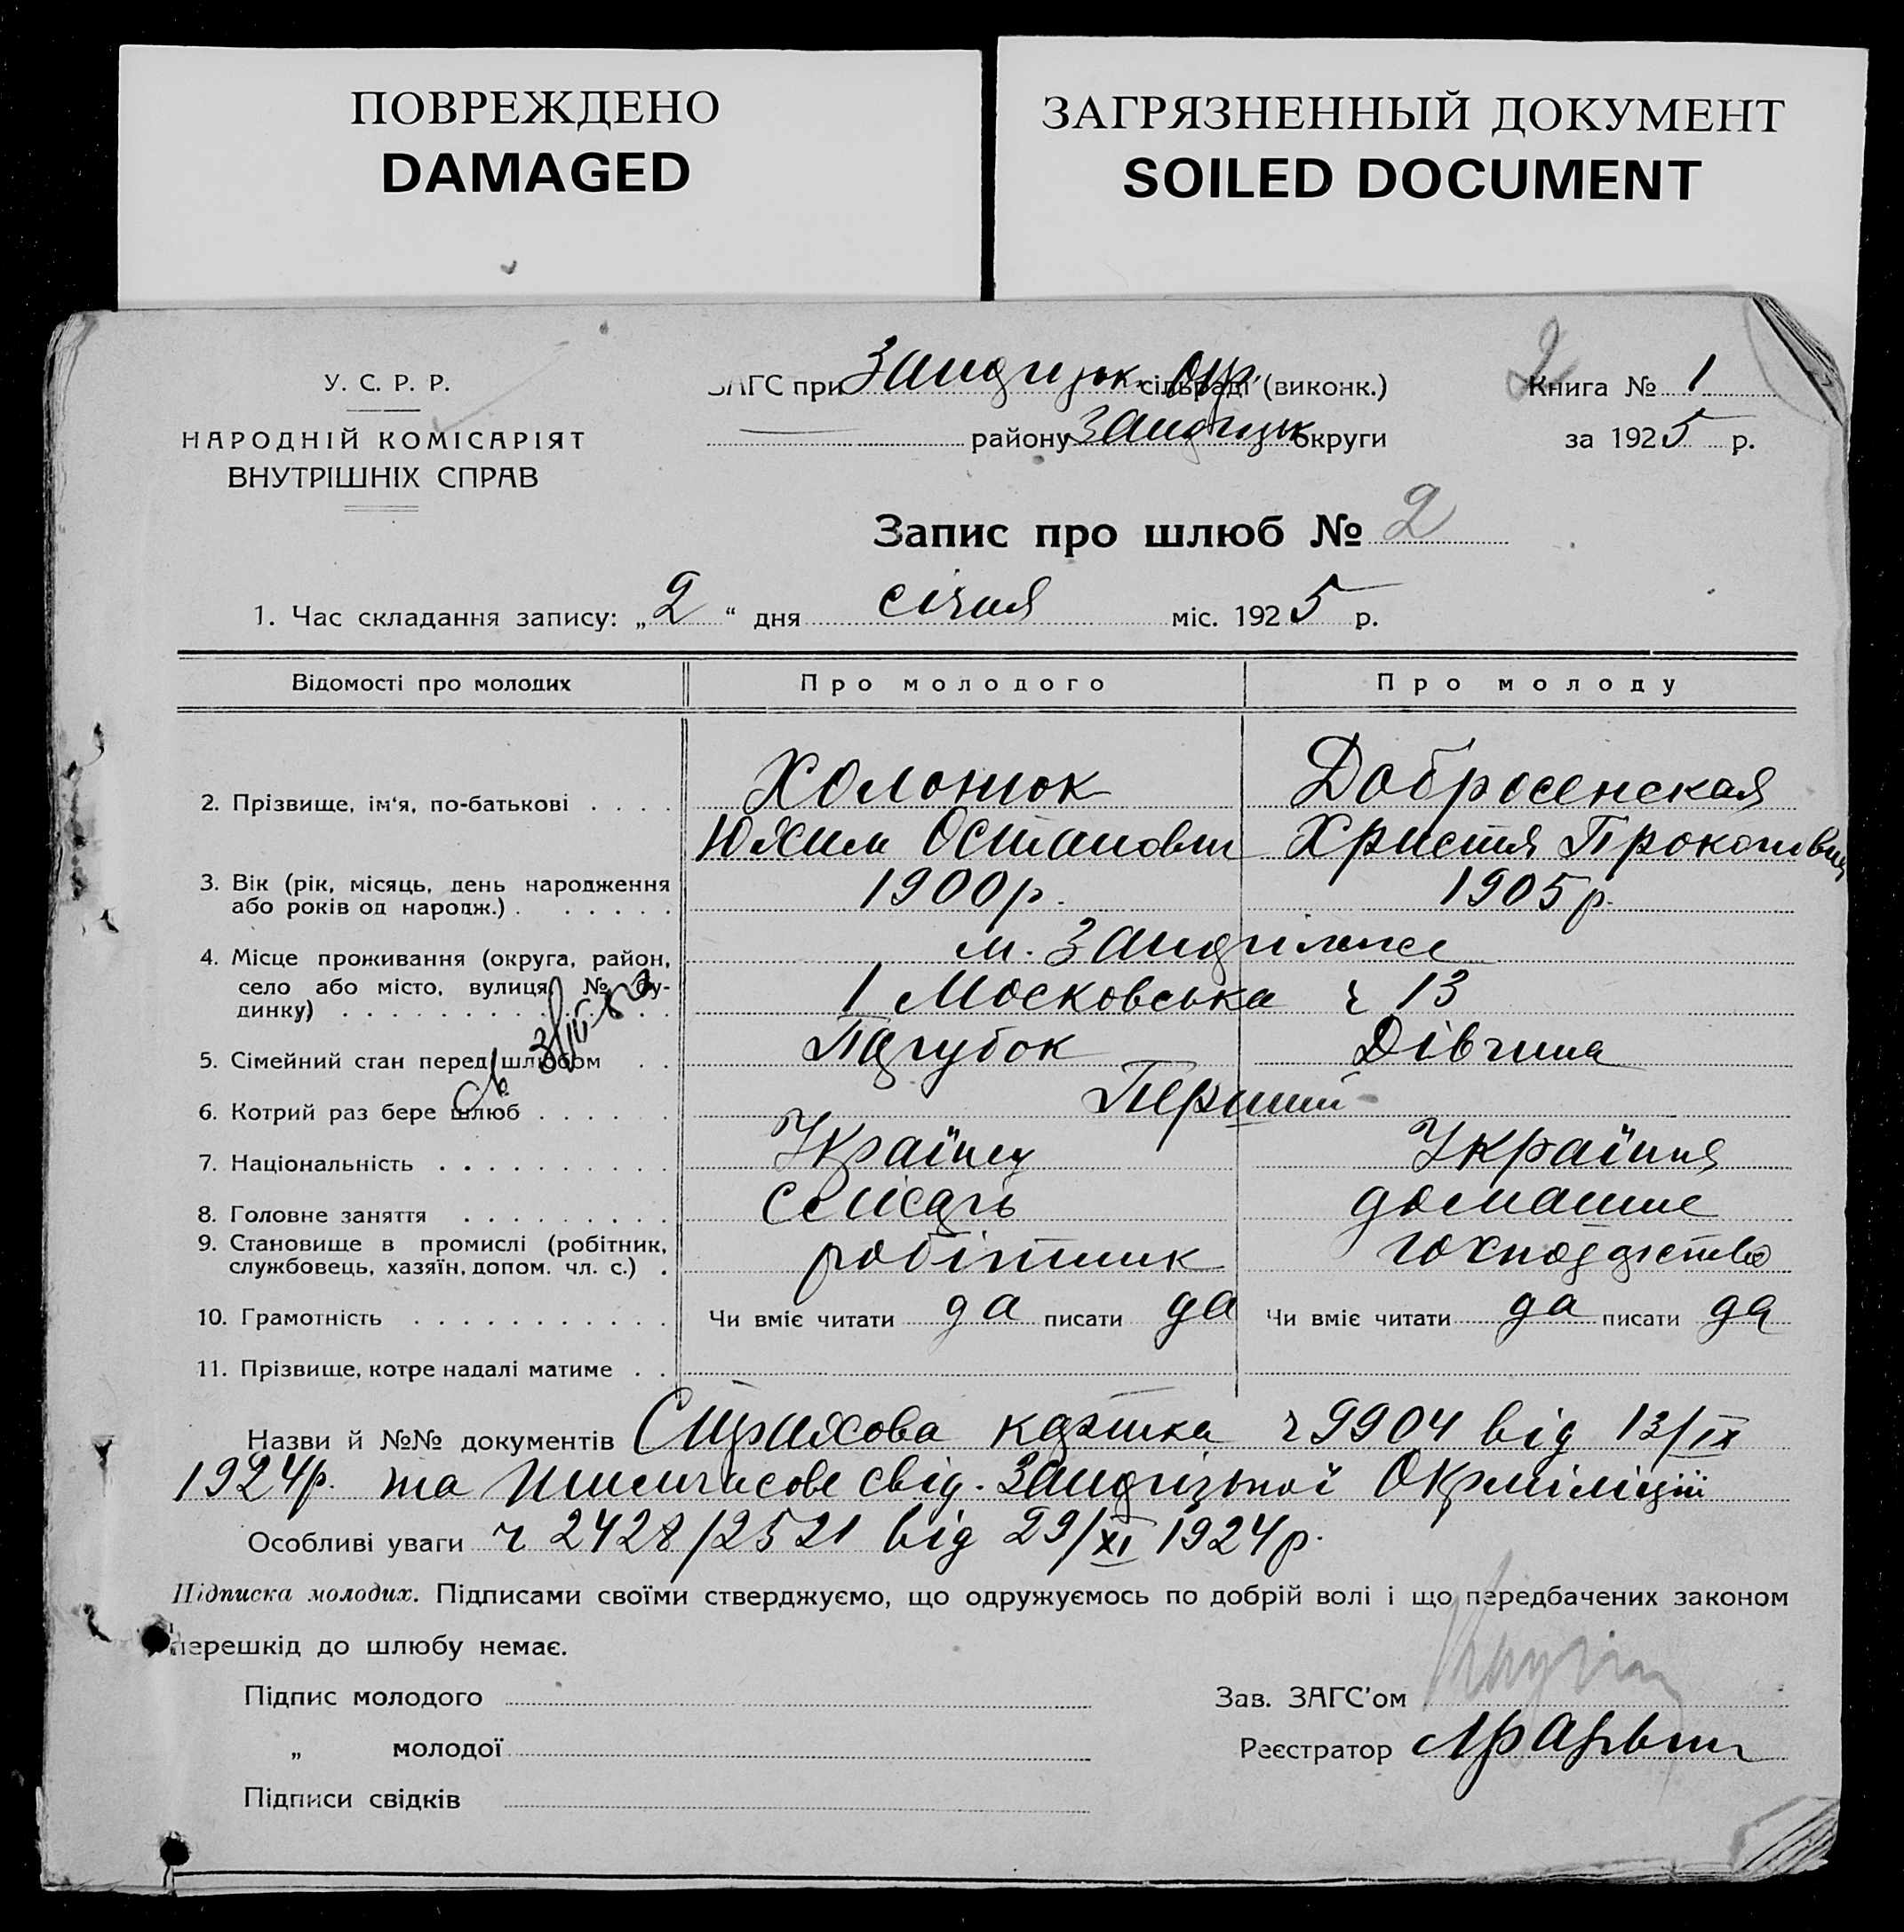 ПОВРЕЖДЕНО
DAMAGED
ЗАГРЯЗНЕННЫЙ ДОКУМЕНТ
SOILED DOCUMENT
2
У. С. Р. Р.
НАРОДНІЙ КОМІСАРІЯТ
ВНУТРІШНІХ СПРАВ
ЗАГС при сільраді (виконк.)
району округи
Книга № 1
за 1925 р.
Запис про шлюб № 2
1. Час складання запису: „2“ дня січня міс. 1925 р.
Відомості про молодих Про молодого Про молоду
2. Прізвище, ім'я, по-батькові . . . . Холонюк Добросенская
Юхим Остапович Христя Прокопівна
3. Вік (рік, місяць, день народження
або років од народж.) . . . . . . 1900 р. 1905 р.
4. Місце проживання (округа, район, м.
село або місто, вулиця, № бу-
динку) . . . . . . . . . . . . 1 Московська ч 13
5. Сімейний стан перед шлюбом . . Парубок Дівчина
6. Котрий раз бере шлюб . . . . . Перший
7. Національність . . . . . . . . . Українец Україння
8. Головне заняття . . . . . . . . . домашне
9. Становище в промислі (робітник,
службовець, хазяїн, допом. чл. с.) . робітник
10. Грамотність . . . . . . . . . . . Чи вміє читати да писати да Чи вміє читати да писати да
11. Прізвище, котре надалі матиме . .
Назви й №№ документів Страхова картка ч 9904 від 13/IX
1924 р. та свід. Окрміліції
Особливі уваги ч 2428/2521 від 29/XI 1924 р.
Підписка молодих. Підписами своїми стверджуємо, що одружуємось по добрій волі і що передбачених законом
перешкід до шлюбу немає.
Підпис молодого
Зав. ЗАГС'ом
„ молодої
Реєстратор
Підписи свідків